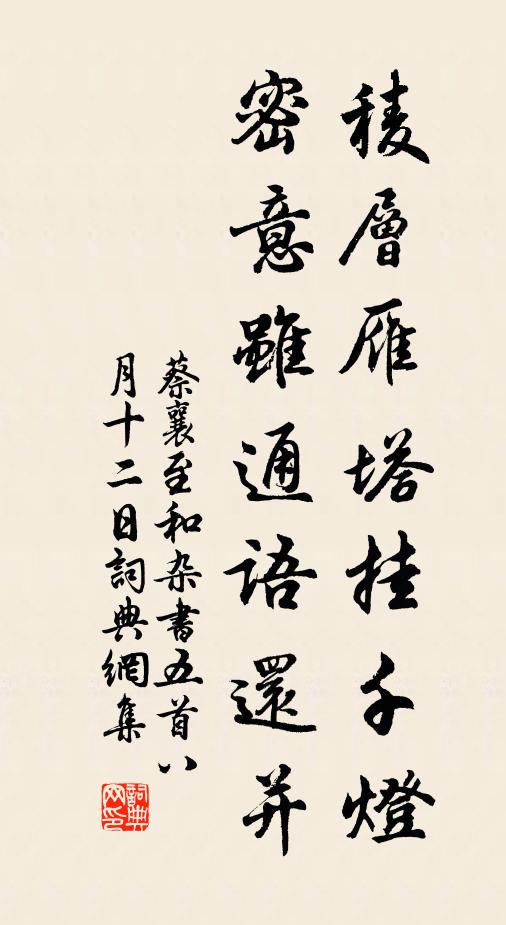 稜層雁塔挂千燈
密意雖通語還并
蔡襄至和杂書五首八
月十二日詞典網集
詞典
网印